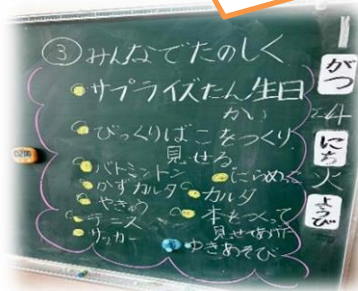 ③みんなでたのしく
サプライズたん生日
かい
びっくりばこをつくり
見せる
バトミントン
にらめっこ
かずカルタ
カルタ
やきゅう
本をつくって
見せあう
テニス
サッカー
ゆきあそび
がつ
24
にち
火
ようび